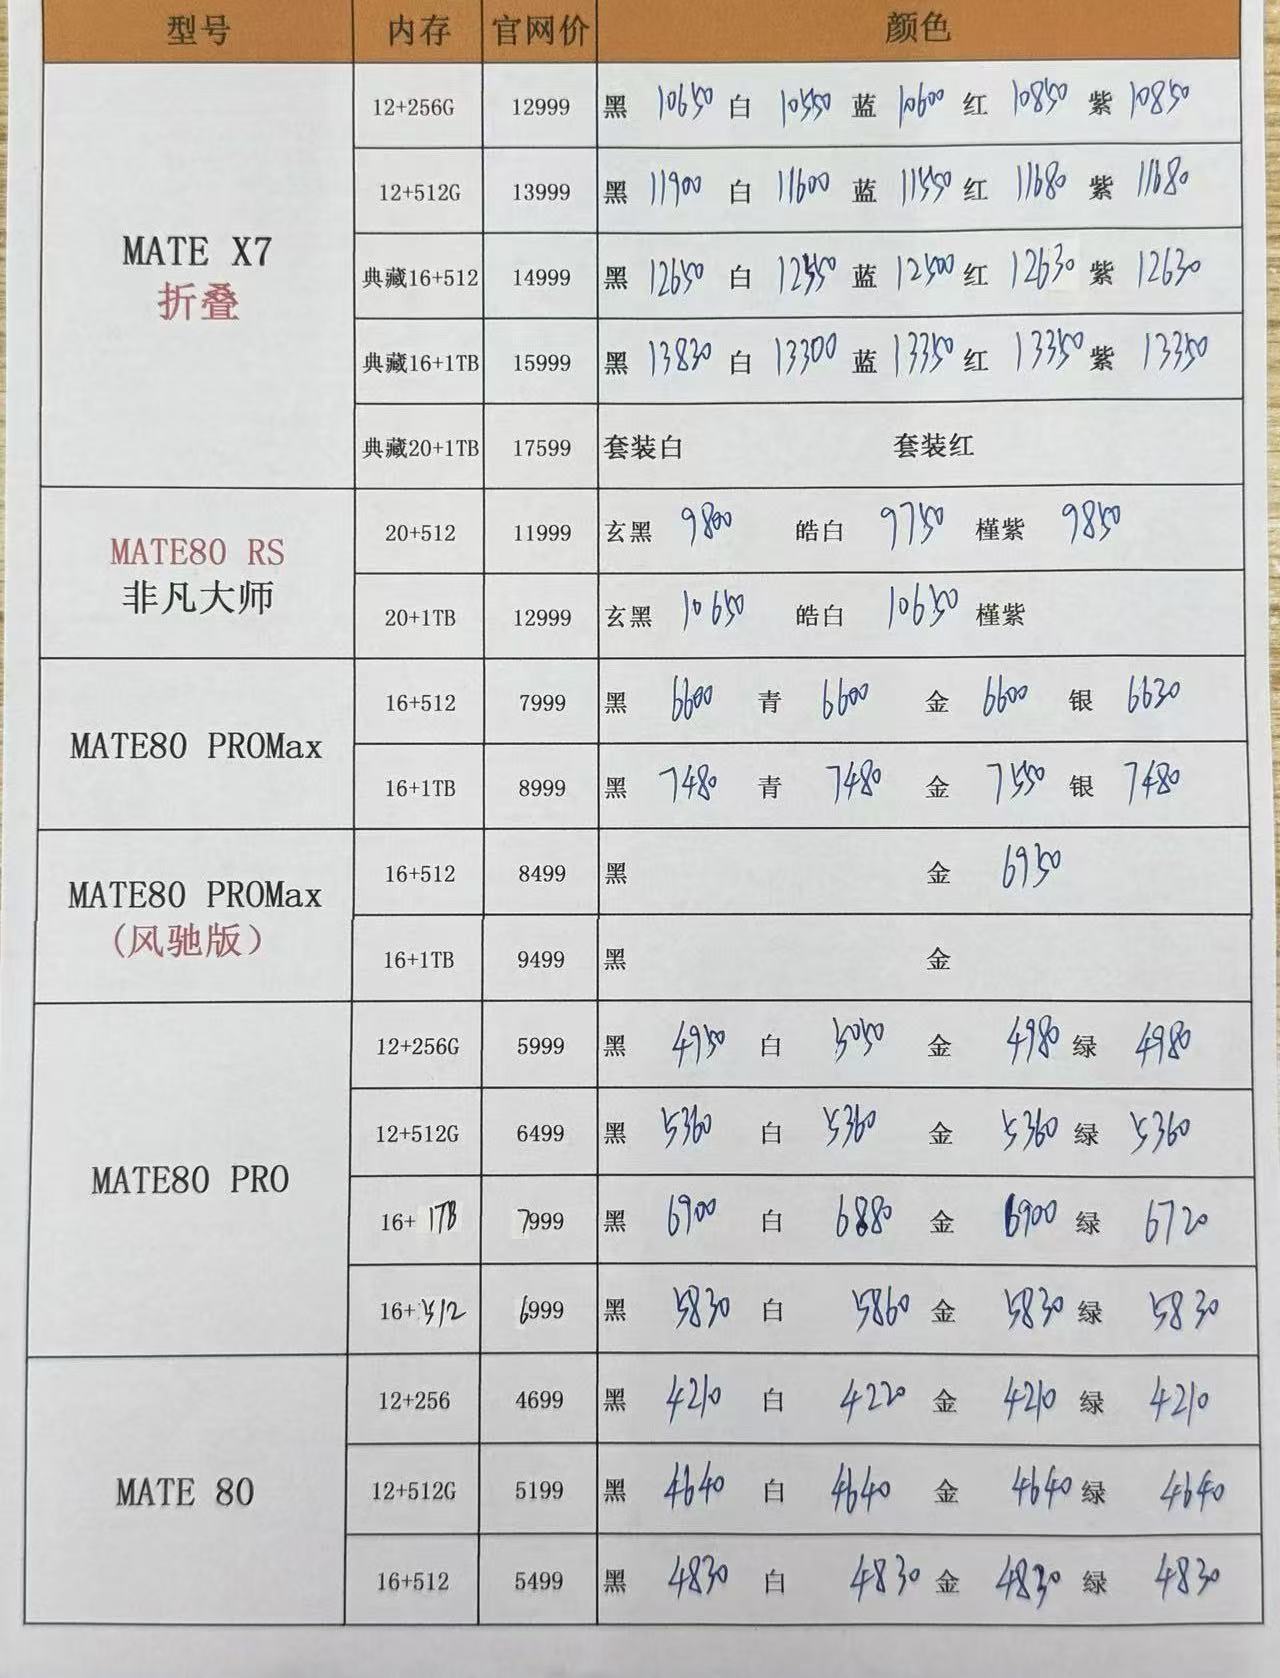 型号 内存 官网价 颜色
MATE X7
折叠
12+256G 12999 黑 10650 白 10550 蓝 10600 红 10850 紫 10850
12+512G 13999 黑 11900 白 11600 蓝 11550 红 11680 紫 11680
典藏16+512 14999 黑 12650 白 12550 蓝 12500 红 12630 紫 12630
典藏16+1TB 15999 黑 13830 白 13300 蓝 13350 红 13350 紫 13350
典藏20+1TB 17599 套装白 套装红
MATE80 RS
非凡大师
20+512 11999 玄黑 9800 皓白 9750 槿紫 9850
20+1TB 12999 玄黑 10650 皓白 10650 槿紫
MATE80 PROMax
16+512 7999 黑 6600 青 6600 金 6600 银 6630
16+1TB 8999 黑 7480 青 7480 金 7550 银 7480
MATE80 PROMax
(风驰版)
16+512 8499 黑 金 6950
16+1TB 9499 黑 金
MATE80 PRO
12+256G 5999 黑 4950 白 5050 金 4980 绿 4980
12+512G 6499 黑 5360 白 5360 金 5360 绿 5360
16+1TB 7999 黑 6900 白 6880 金 6900 绿 6720
16+512 6999 黑 5830 白 5860 金 5830 绿 5830
MATE 80
12+256 4699 黑 4210 白 4220 金 4210 绿 4210
12+512G 5199 黑 4640 白 4640 金 4640 绿 4640
16+512 5499 黑 4830 白 4830 金 4830 绿 4830